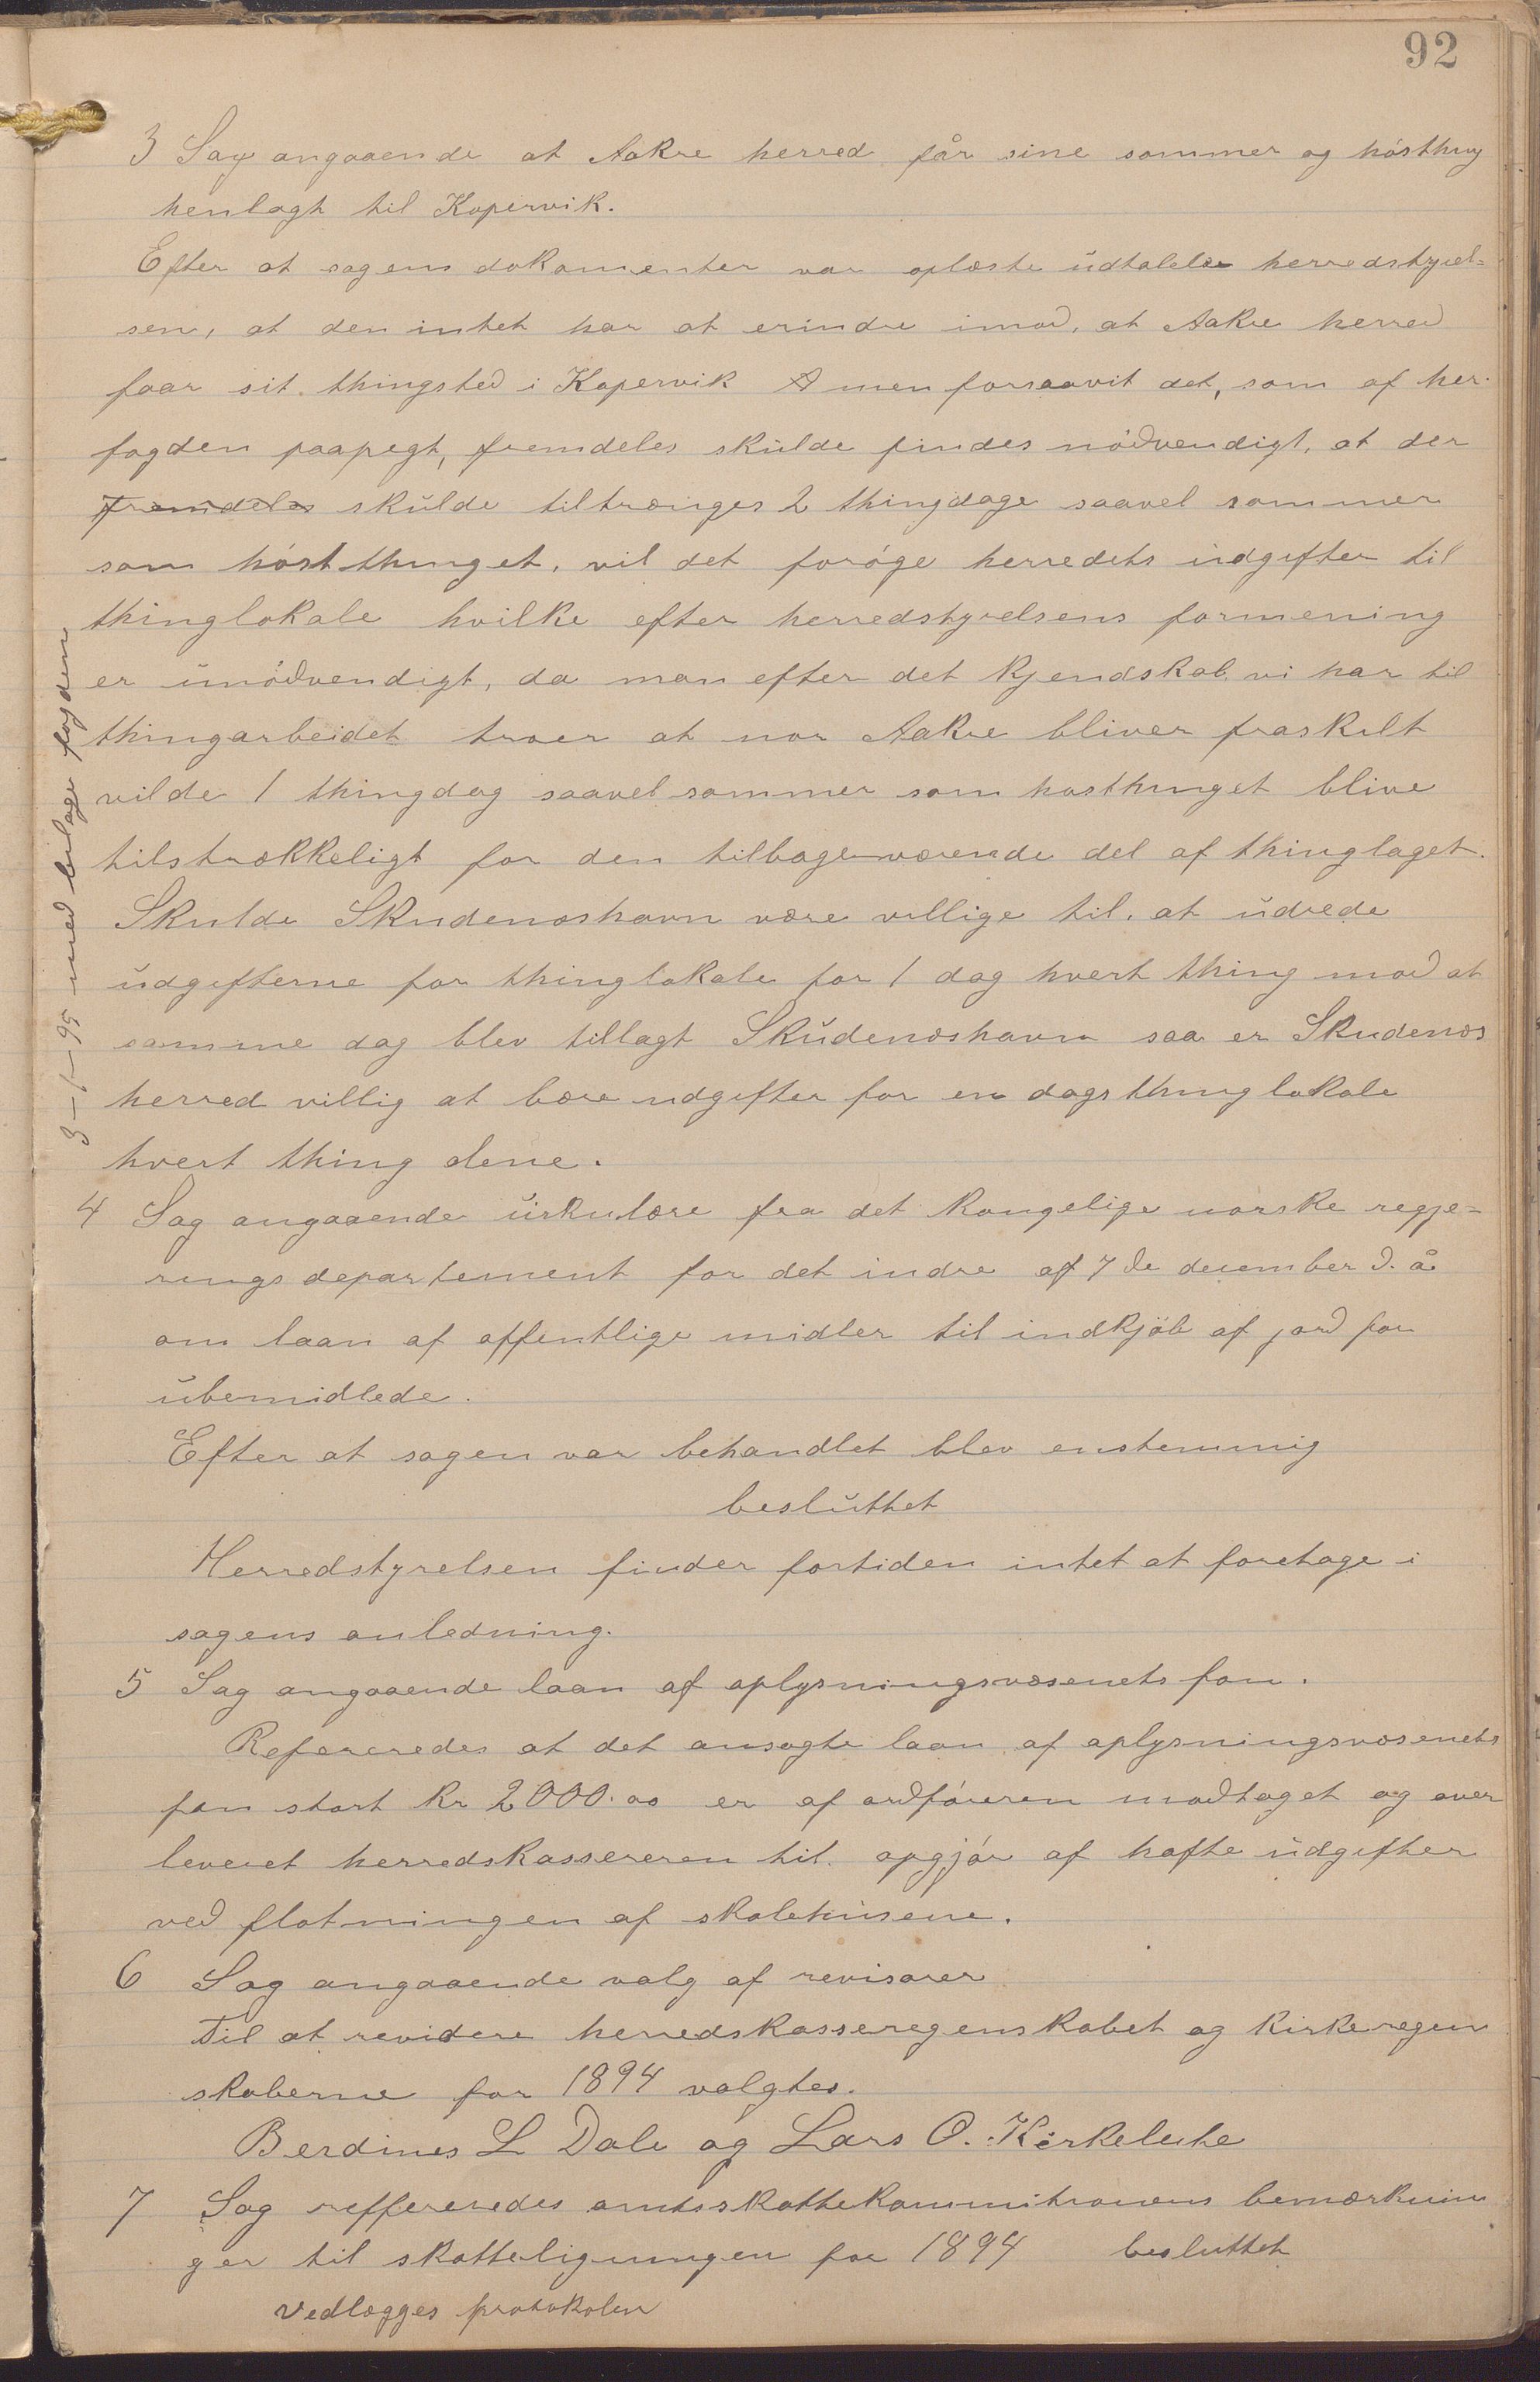 92
3 Sag angaaende at Aakre herred får sine sommer og hósthing
henlagt til Kopervik.
Efter at sagens dokomenter var oplæste údtaleler herredstyrel=
sen, at den intet har at erindre imod, at Aakre herred
faar sit thingsted i Kopervik men forsaavit det, som af her.
fogden paapegt, fremdeles skúlde findes nódvendigt, at der
fremdeles skúlde tiltrænges 2 thingdage saavel sommer
som hóstthinget, vil det foróge herredets údgifter til
thinglokale hvilke efter herredstyrelsens formening
er únódvendigt, da man efter det kjendskab vi har til
thingarbeidet troer at nor Aakre bliver fraskilt
vilde 1 thingdag saavel sommer som hosthinget blive
tilstrækkeligt for den tilbageværende del af thinglaget.
Skulde Skudenæshavn være villige til, at údrede
údgifterne for thinglokale for 1 dag hvert thing mod at
samme dag blev tillagt Skúdenæshavn saa er Skudenæs
herred villig at bære udgifter for en dags thinglokale
hvert thing dene.
3-1-95 med bilage fogden
4 Sag angaaende cirkulære fra det kongelige norske regje=
rings departement for det indre af 7de december d. å
om laan af offentlige midler til indkjöb af jord for
úbemidlede.
Efter at sagen var behandlet blev enstemmig
beslúttet
Herredstyrelsen finder fortiden intet at foretage i
sagens anledning.
5 Sag angaaende laan af oplysningsvæsenets fon.
Refereredes at det ansøgte laan af oplysningsvæsenets
fon stort kr 2000.00 er af ordfóreren modtaget og over
leveret herredskassereren til opgjór af hafte údgifter
ved flotningen af skolehúsene.
6 Sag angaaende valg af revisorer
Til at revidere herredskasseregenskabet og kirkeregen
skaberne for 1894 valgtes.
Berdines L Dale og Lars O. Kirkeleite
7 Sag reffereredes amtsskattekommitionens bemærknin
ger til skatteligningen for 1894 besluttet
Vedlægges protokolen